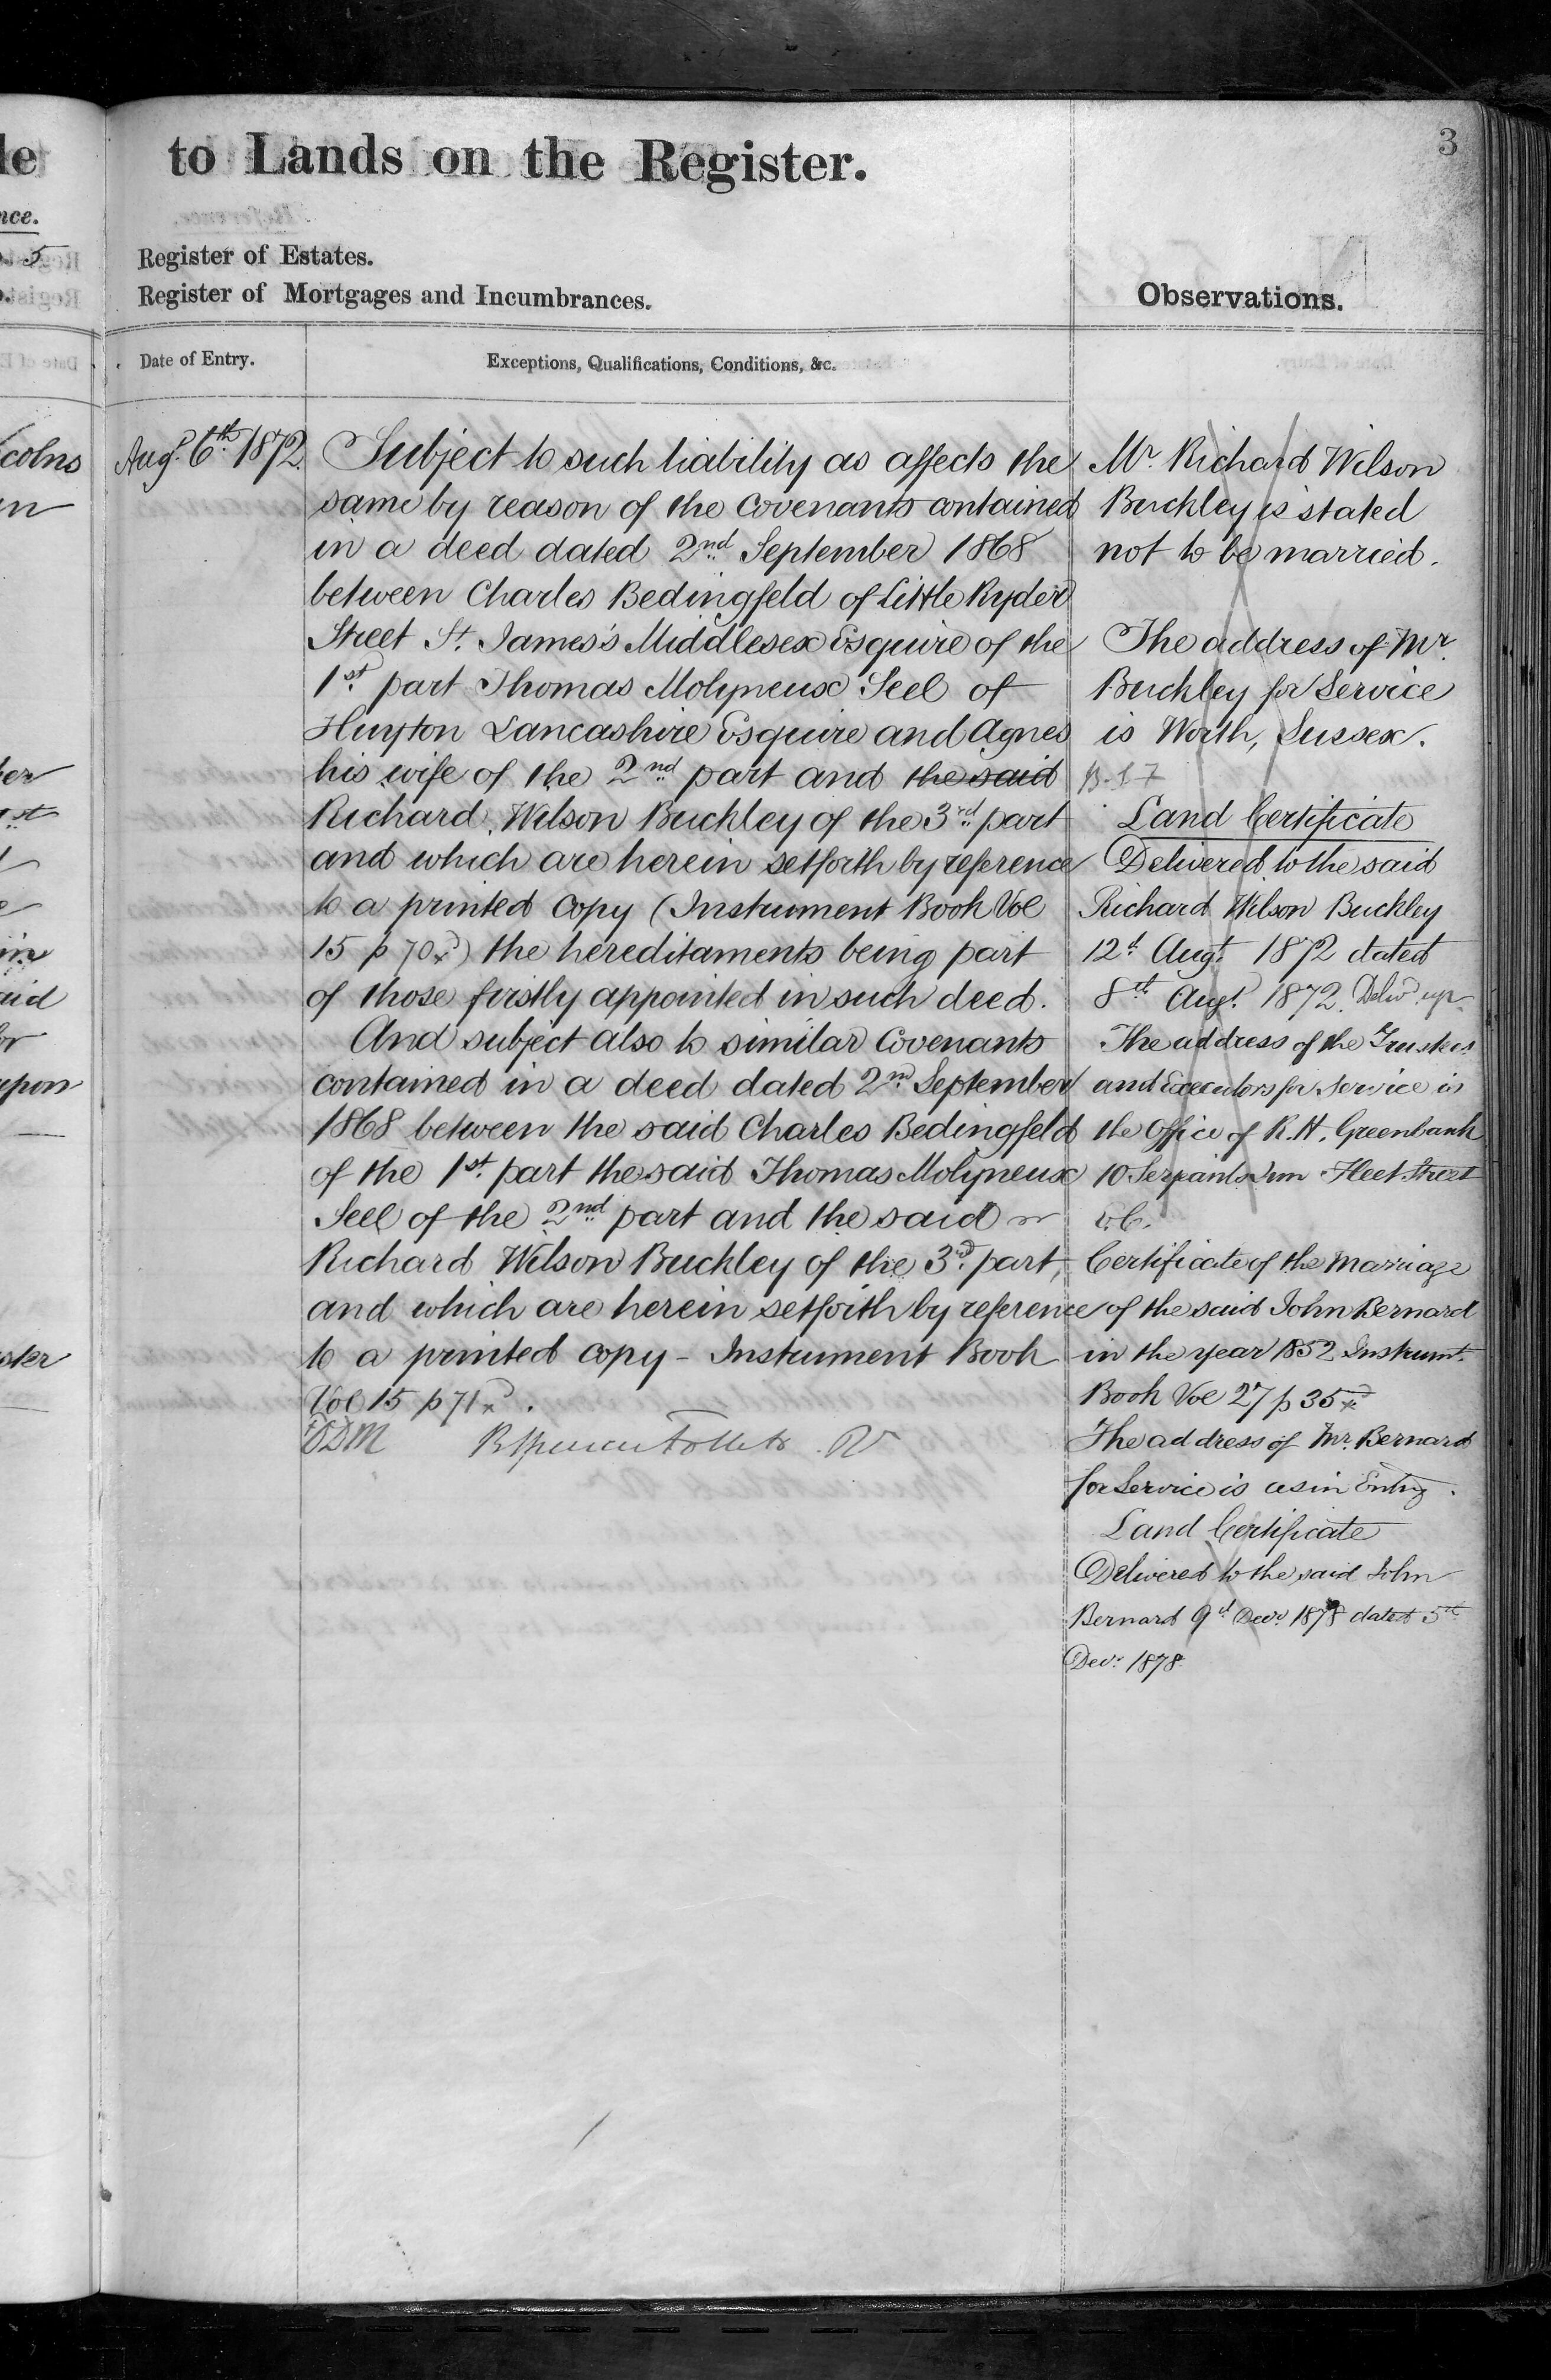 to Lands on the Register.
3
Register of Estates.
Register of Mortgages and Incumbrances.
Observations.
Date of Entry.
Exceptions, Qualifications, Conditions, &c.
Augt. 6th 1872.
Subject to such liability as affects the
same by reason of the Covenants contained
in a deed dated 2nd September 1868
between Charles Bedingfeld of Little Ryder
Street St. James's Middlesex Esquire of the
1st part Thomas Molyneux Seel of
Huyton Lancashire Esquire and Agnes
his wife of the 2nd part and the said
Richard Wilson Buckley of the 3rd part
and which are herein setforth by reference
to a printed Copy (Instrument Book Vol
15 p 70) the hereditaments being part
of those firstly appointed in such deed.
And subject also to similar Covenants
contained in a deed dated 2nd September
1868 between the said Charles Bedingfeld
of the 1st part the said Thomas Molyneux
Seel of the 2nd part and the said
Richard Wilson Buckley of the 3d part,
and which are herein setforth by reference
to a printed copy - Instrument Book
Vol 15 p 71.
Mr. Richard Wilson
Buckley is stated
not to be married.
The address of Mr.
Buckley for Service
is Worth, Sussex.
Land Certificate
Delivered to the said
Richard Wilson Buckley
12th Augt. 1872 dated
8th Augt. 1872. Delivd. up
The address of the Trustees
and Executors for Service is
the Office of R. H. Greenbank
10 Serjeants Inn Fleet Street
E.C.
Certificate of the Marriage
of the said John Bernard
in the year 1852 Instrumt.
Book Vol 27 p 35
The address of Mr. Bernard
for Service is as in Entry.
Land Certificate
Delivered to the said John
Bernard 9th Decr. 1878 dated 5th
Decr. 1878.